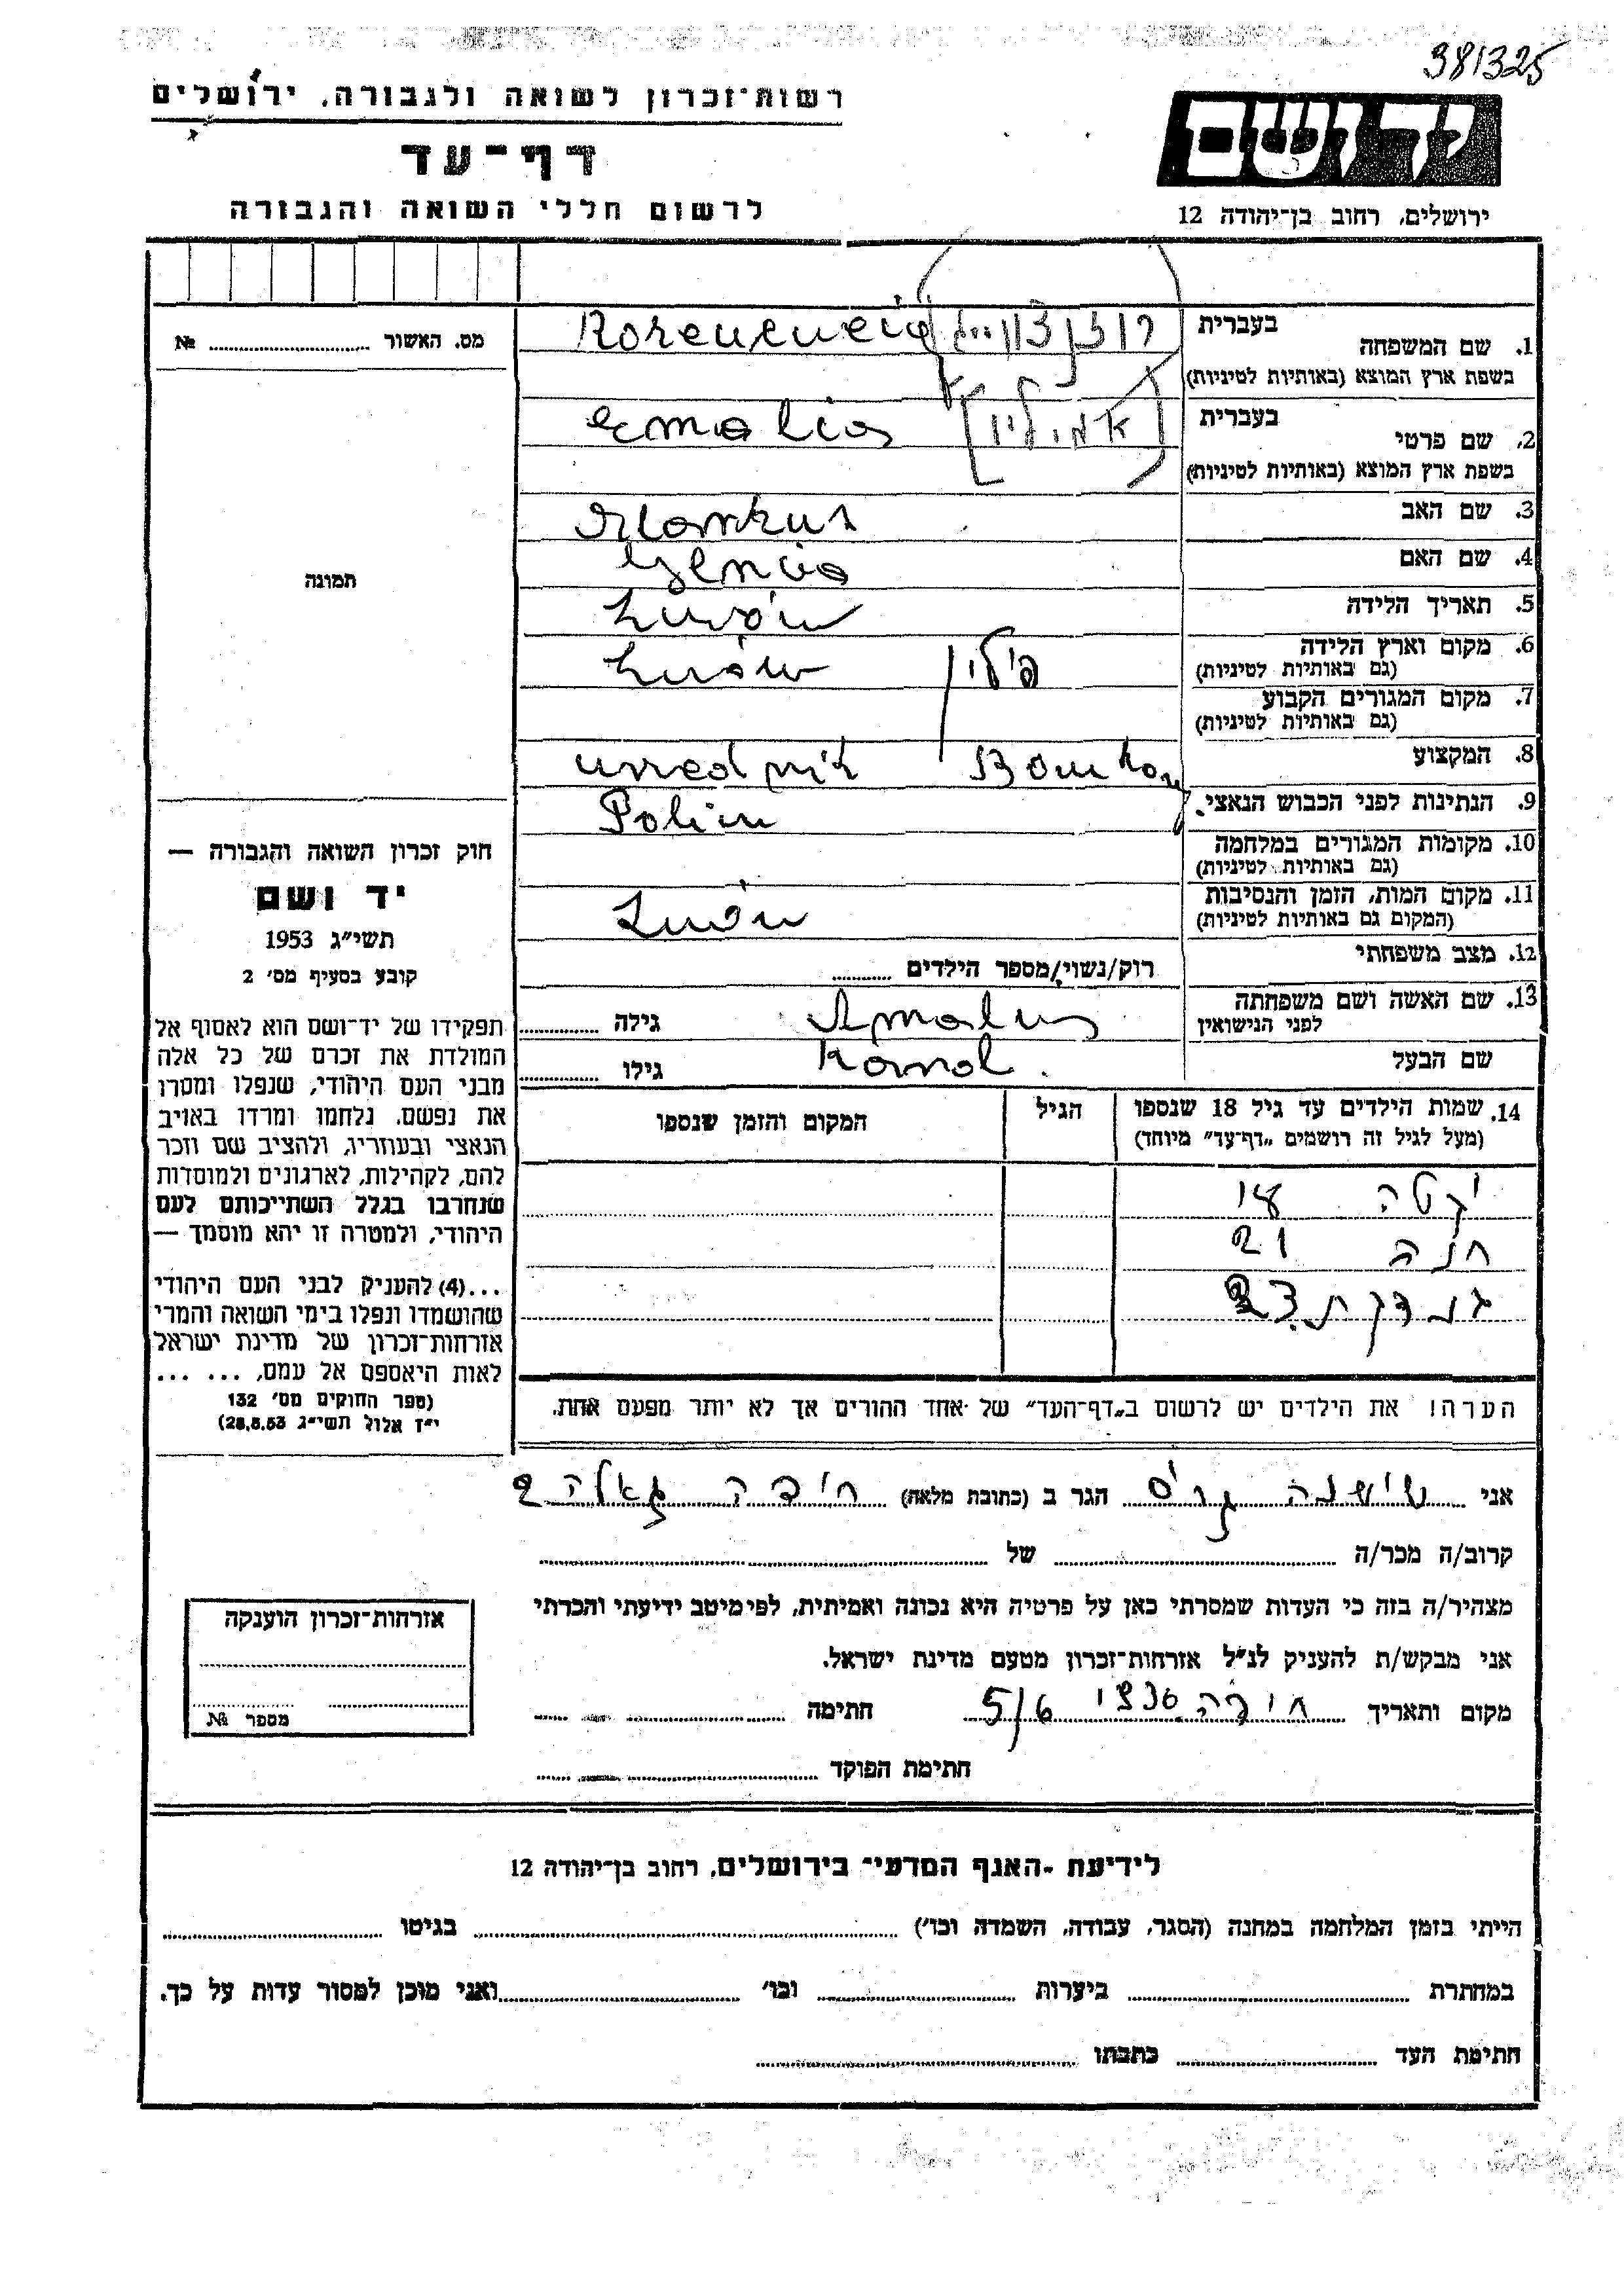 381325
רשות־זכרון לשואה ולגבורה, ירושלים
דף־עד
לרשום חללי השואה והגבורה
יד ושם
ירושלים, רחוב בן־יהודה 12
מס. האשור № ..........
תמונה
1. שם המשפחה בעברית
בשפת ארץ המוצא (באותיות לטיניות)
2. שם פרטי בעברית
בשפת ארץ המוצא (באותיות לטיניות)
3. שם האב
4. שם האם Genia
5. תאריך הלידה Lwów
6. מקום וארץ הלידה פולין Lwów
(גם באותיות לטיניות)
7. מקום המגורים הקבוע
(גם באותיות לטיניות)
8. המקצוע
9. הנתינות לפני הכבוש הנאצי. Polin
10. מקומות המגורים במלחמה
(גם באותיות לטיניות)
11. מקום המות, הזמן והנסיבות Lwów
(המקום גם באותיות לטיניות)
12. מצב משפחתי רוק/נשוי/מספר הילדים ..........
13. שם האשה ושם משפחתה גילה ..........
לפני הנישואין
שם הבעל Karol גילו ..........
14. שמות הילדים עד גיל 18 שנספו הגיל המקום והזמן שנספו
(מעל לגיל זה רושמים "דף־עד" מיוחד)
חנה 21
הערה! את הילדים יש לרשום ב"דף־העד" של אחד ההורים אך לא יותר מפעם אחת.
חוק זכרון השואה והגבורה —
יד ושם
תשי"ג 1953
קובע בסעיף מס' 2
תפקידו של יד־ושם הוא לאסוף אל
המולדת את זכרם של כל אלה
מבני העם היהודי, שנפלו ומסרו
את נפשם, נלחמו ומרדו באויב
הנאצי ובעוזריו, ולהציב שם וזכר
להם, לקהילות, לארגונים ולמוסדות
שנחרבו בגלל השתייכותם לעם
היהודי, ולמטרה זו יהא מוסמך —
...(4) להעניק לבני העם היהודי
שהושמדו ונפלו בימי השואה והמרי
אזרחות־זכרון של מדינת ישראל
לאות היאספם אל עמם, ... ...
(ספר החוקים מס' 132
י"ז אלול תשי"ג 28.8.53)
אני שושנה הגר ב (כתובת מלאה) חיפה גאולה
קרוב/ה מכר/ה .......... של ..........
מצהיר/ה בזה כי העדות שמסרתי כאן על פרטיה היא נכונה ואמיתית, לפי מיטב ידיעתי והכרתי
אני מבקש/ת להעניק לנ"ל אזרחות־זכרון מטעם מדינת ישראל.
מקום ותאריך חיפה 5/6 חתימה ..........
חתימת הפוקד ..........
אזרחות־זכרון הוענקה
מספר №
לידיעת ־האגף המדעי־ בירושלים, רחוב בן־יהודה 12
הייתי בזמן המלחמה במחנה (הסגר, עבודה, השמדה וכו') .......... בגיטו ..........
במחתרת .......... ביערות .......... וכו' .......... ואני מוכן למסור עדות על כך.
חתימת העד .......... כתבתו ..........